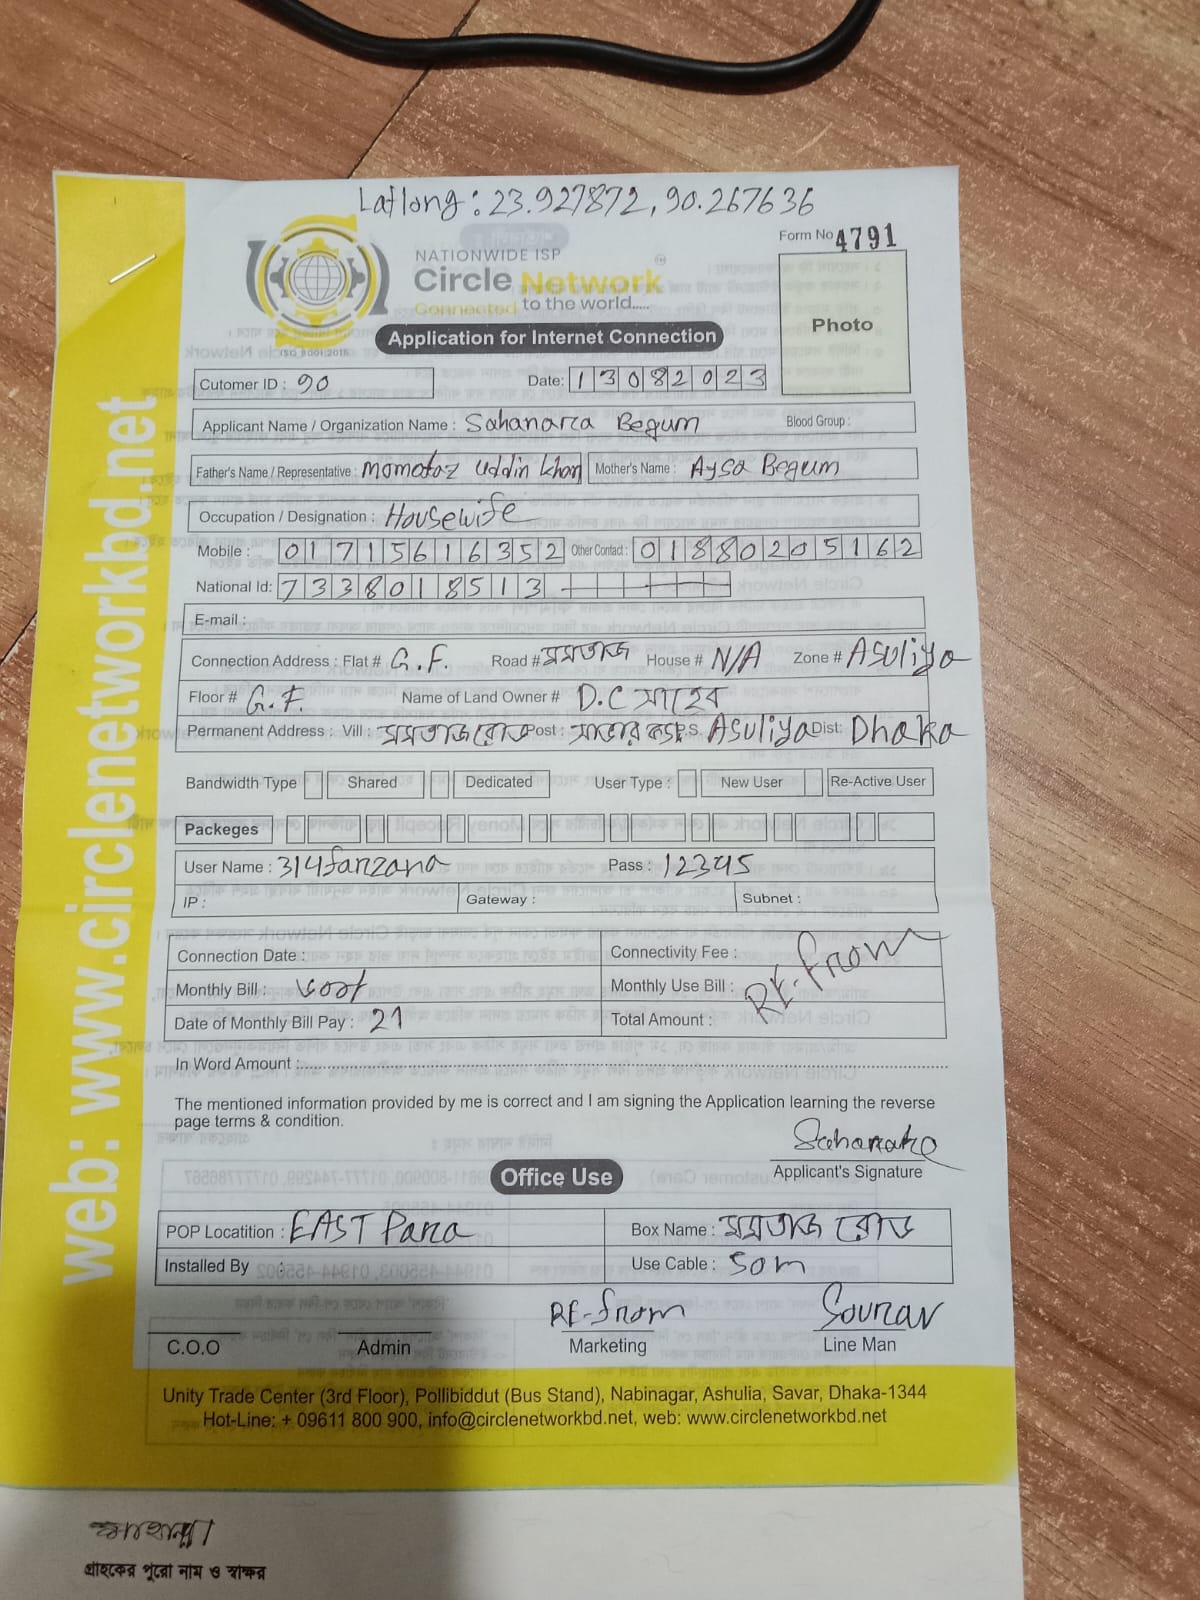 Latlong: 23.927872, 90.267636
Form No 4791
NATIONWIDE ISP
Circle Network
Connected to the world.....
Application for Internet Connection
ISO 9001:2015
Photo
Cutomer ID : 90 Date: 13082023
Applicant Name / Organization Name : Sahanara Begum Blood Group :
Father's Name / Representative : Momotaz Uddin Khan Mother's Name : Aysa Begum
Occupation / Designation : Housewife
Mobile : 01715616352 Other Contact : 01880205162
National Id: 7338018513
E-mail :
Connection Address : Flat # G.F. Road # মমতাজ House # N/A Zone # Asuliya
Floor # G.F. Name of Land Owner # D.C সাহেব
Permanent Address : Vill : মমতাজ রোড Post : সাভার P.S. Asuliya Dist: Dhaka
Bandwidth Type Shared Dedicated User Type : New User Re-Active User
Packeges
User Name : 314farzana Pass : 12345
IP : Gateway : Subnet :
Connection Date : Connectivity Fee :
Monthly Bill : Monthly Use Bill : RE-from
Date of Monthly Bill Pay : 21 Total Amount :
In Word Amount :
The mentioned information provided by me is correct and I am signing the Application learning the reverse
page terms & condition.
Sahanara
Applicant's Signature
Office Use
POP Locatition : EAST Para Box Name : মমতাজ রোড
Installed By : Use Cable : 50m
RE-from Sourav
C.O.O Admin Marketing Line Man
Unity Trade Center (3rd Floor), Pollibiddut (Bus Stand), Nabinagar, Ashulia, Savar, Dhaka-1344
Hot-Line: + 09611 800 900, info@circlenetworkbd.net, web: www.circlenetworkbd.net
গ্রাহকের পুরো নাম ও স্বাক্ষর
web: www.circlenetworkbd.net